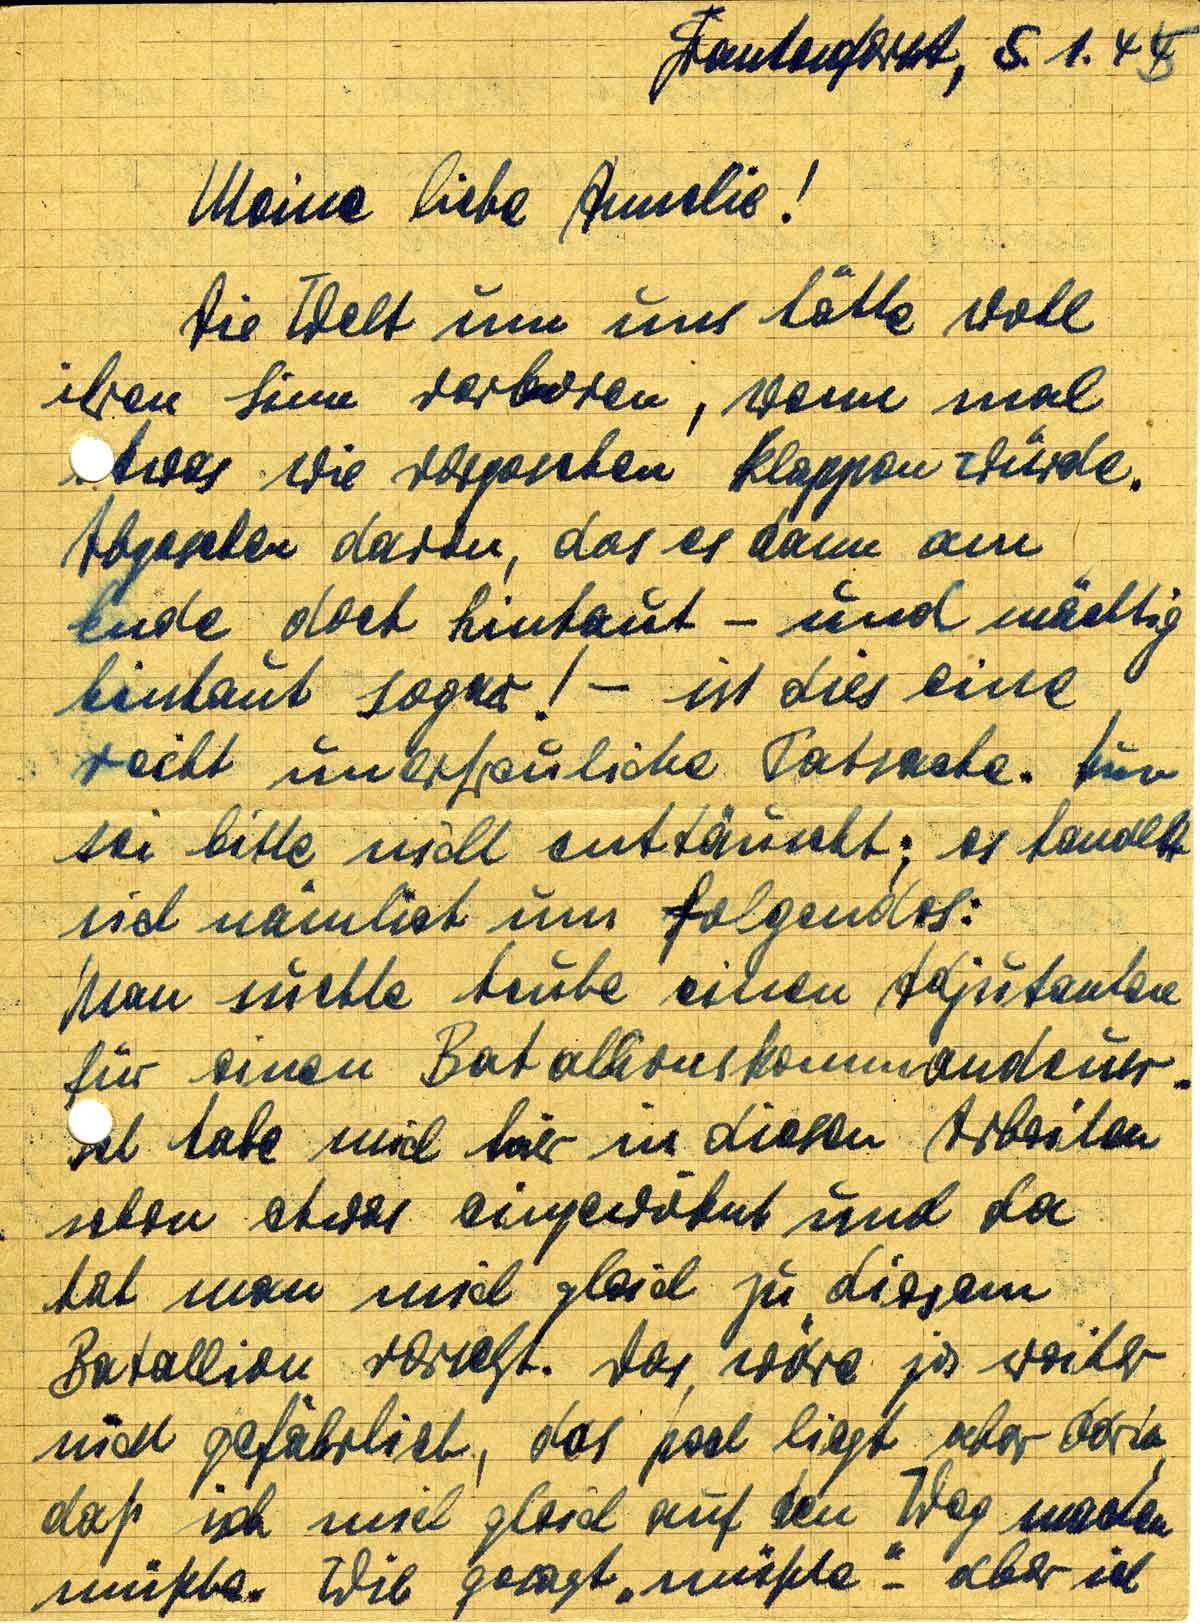 Frankenforst, 5. 1. 45
Meine liebe Annelie!
Die Welt um uns hätte wohl
ihren Sinn verloren, wenn mal
etwas wie vorgesehen klappen würde.
Abgesehen davon, das es dann am
Ende doch hinhaut – und mächtig
hinhaut sogar! – ist dies eine
recht unerfreuliche Tatsache. Nun
sei bitte nicht enttäuscht; es handelt
sich nämlich um folgendes:
Man suchte heute einen Adjutanten
für einen Batallionskommandeur.
Ich habe mich hier in diesen Arbeiten
schon etwas eingewöhnt und da
hat man mich gleich zu diesem
Batallion versetzt. Das wäre ja weiter
nicht gefährlich, das Pech liegt aber darin,
daß ich mich gleich auf den Weg machen
müßte. Wie gesagt „müßte“ – aber ich